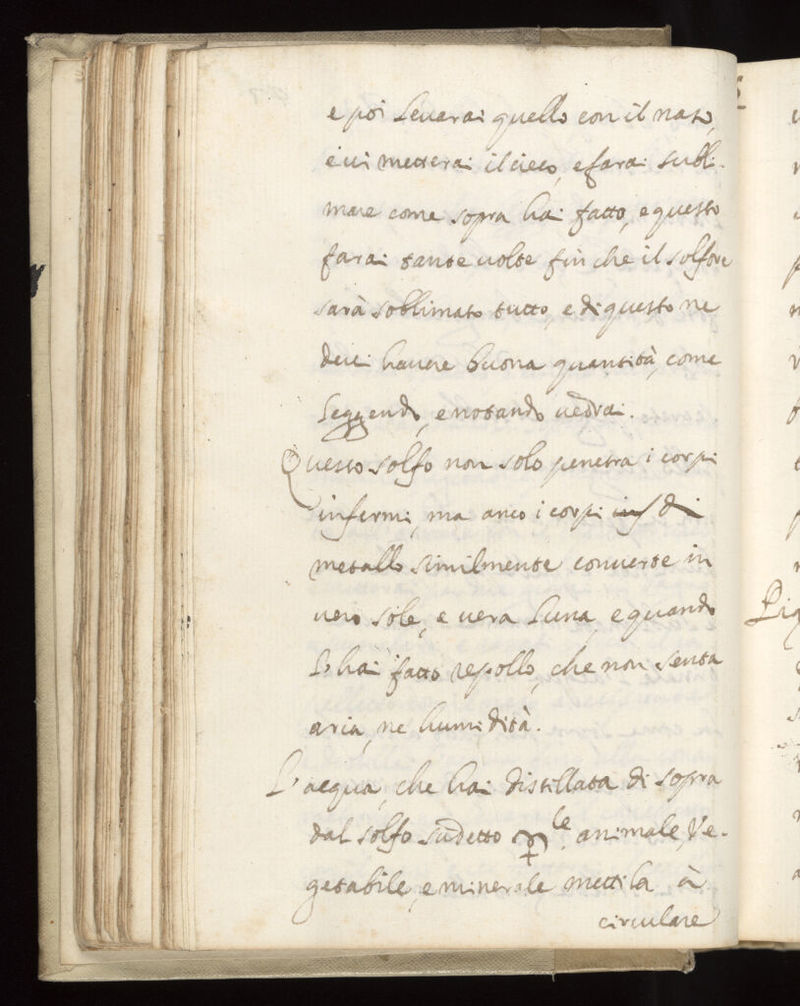 e poi Levarai quello con il nato,
e ui metterai il cieco, e farai subli-
mare come sopra hai fatto, e questo
farai tante uolte fin che il solfore
sarà soblimato tutto, e di questo ne
deui hauere buona quantità, come
Leggendo, e notando uedrai.
Questo solfo non solo penetra i corpi
infermi, ma anco i corpi di
metallo similmente conuerte in
uero sole, e uera Luna, e quando
L'hai fatto repollo, che non senta
aria, ne humidità.
L'acqua, che hai distillata di sopra
dal solfo sudetto le animale, Ve-
getabile, e minerale mettila à
circulare